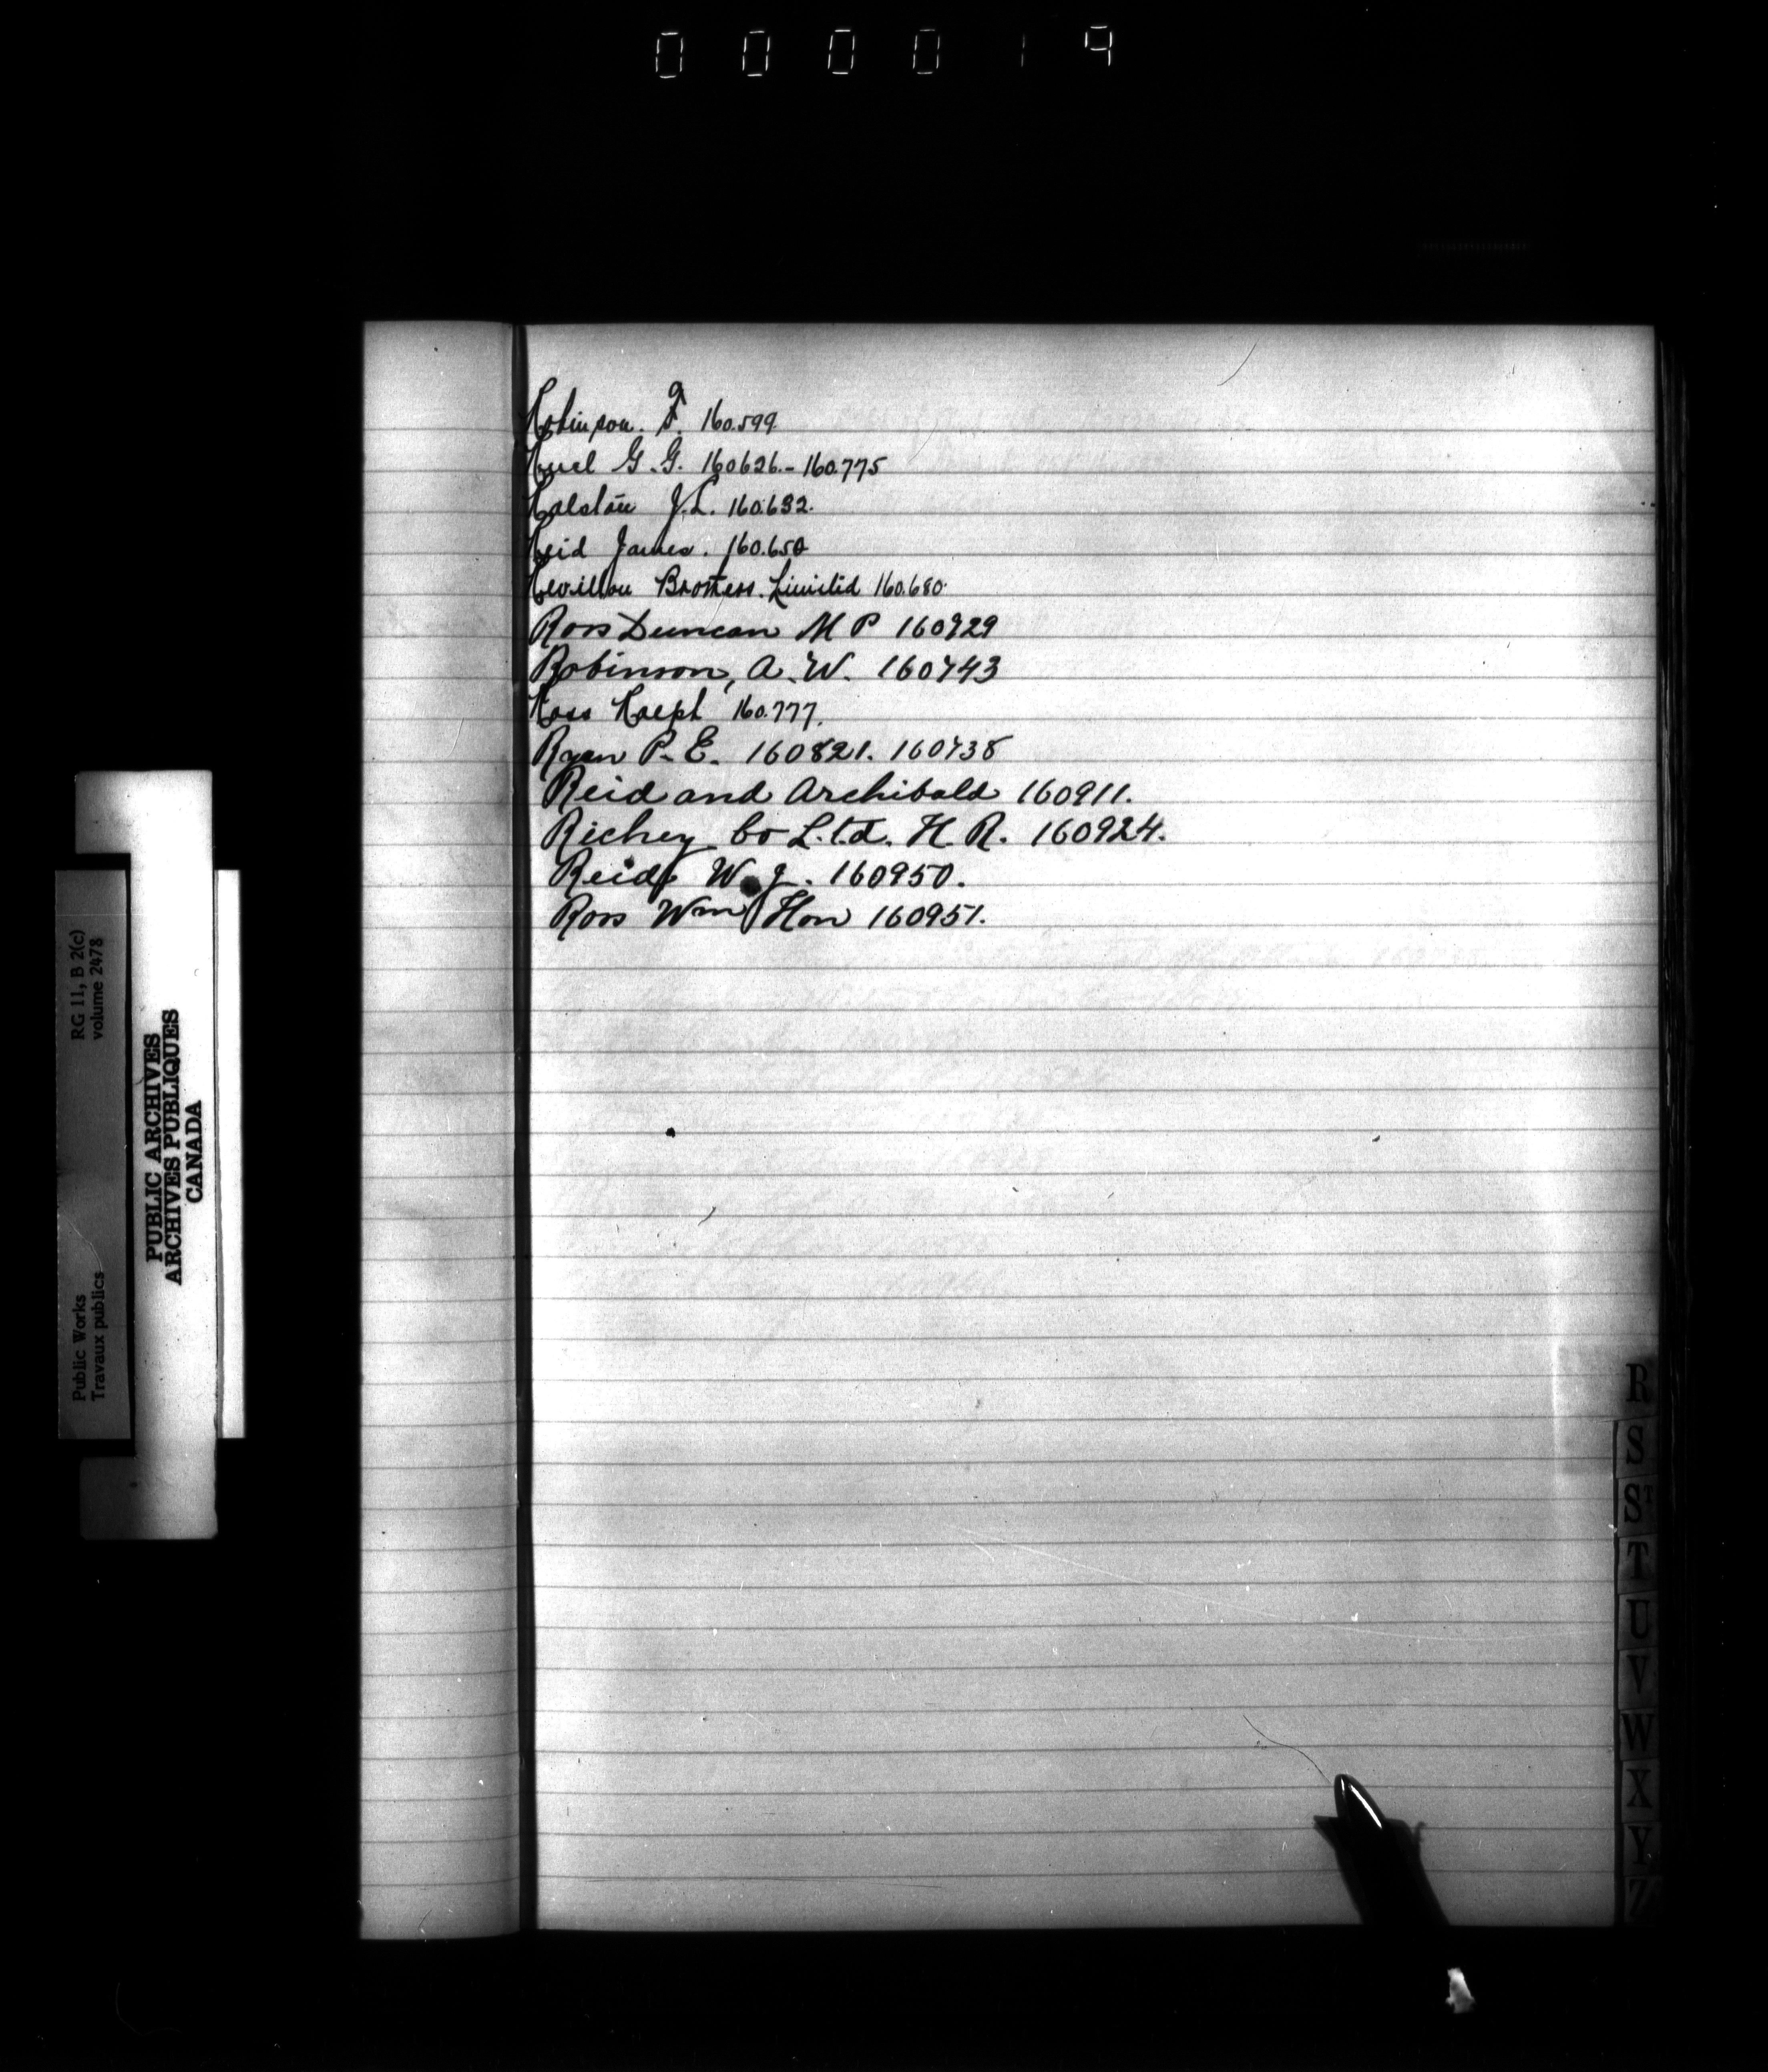 000019
Robinson. F. 160.599.
Ruel G.G. 160626.- 160.775
Ralston J.L. 160.632.
Reid James. 160.650
Revillon Brothers. Limited 160.680.
Ross Duncan M P 160729
Robinson, A. W. 160743
Ross Ralph 160.777.
Ryan P. E. 160821. 160738
Reid and Archibald 160911.
Richey Co L.td. H. R. 160924.
Reid W. J. 160950.
Ross Wm Hon 160951.
RG 11, B 2(c)
volume 2478
Public Works
Travaux publics
PUBLIC ARCHIVES
ARCHIVES PUBLIQUES
CANADA
R
S
ST
T
U
V
W
X
Y
Z